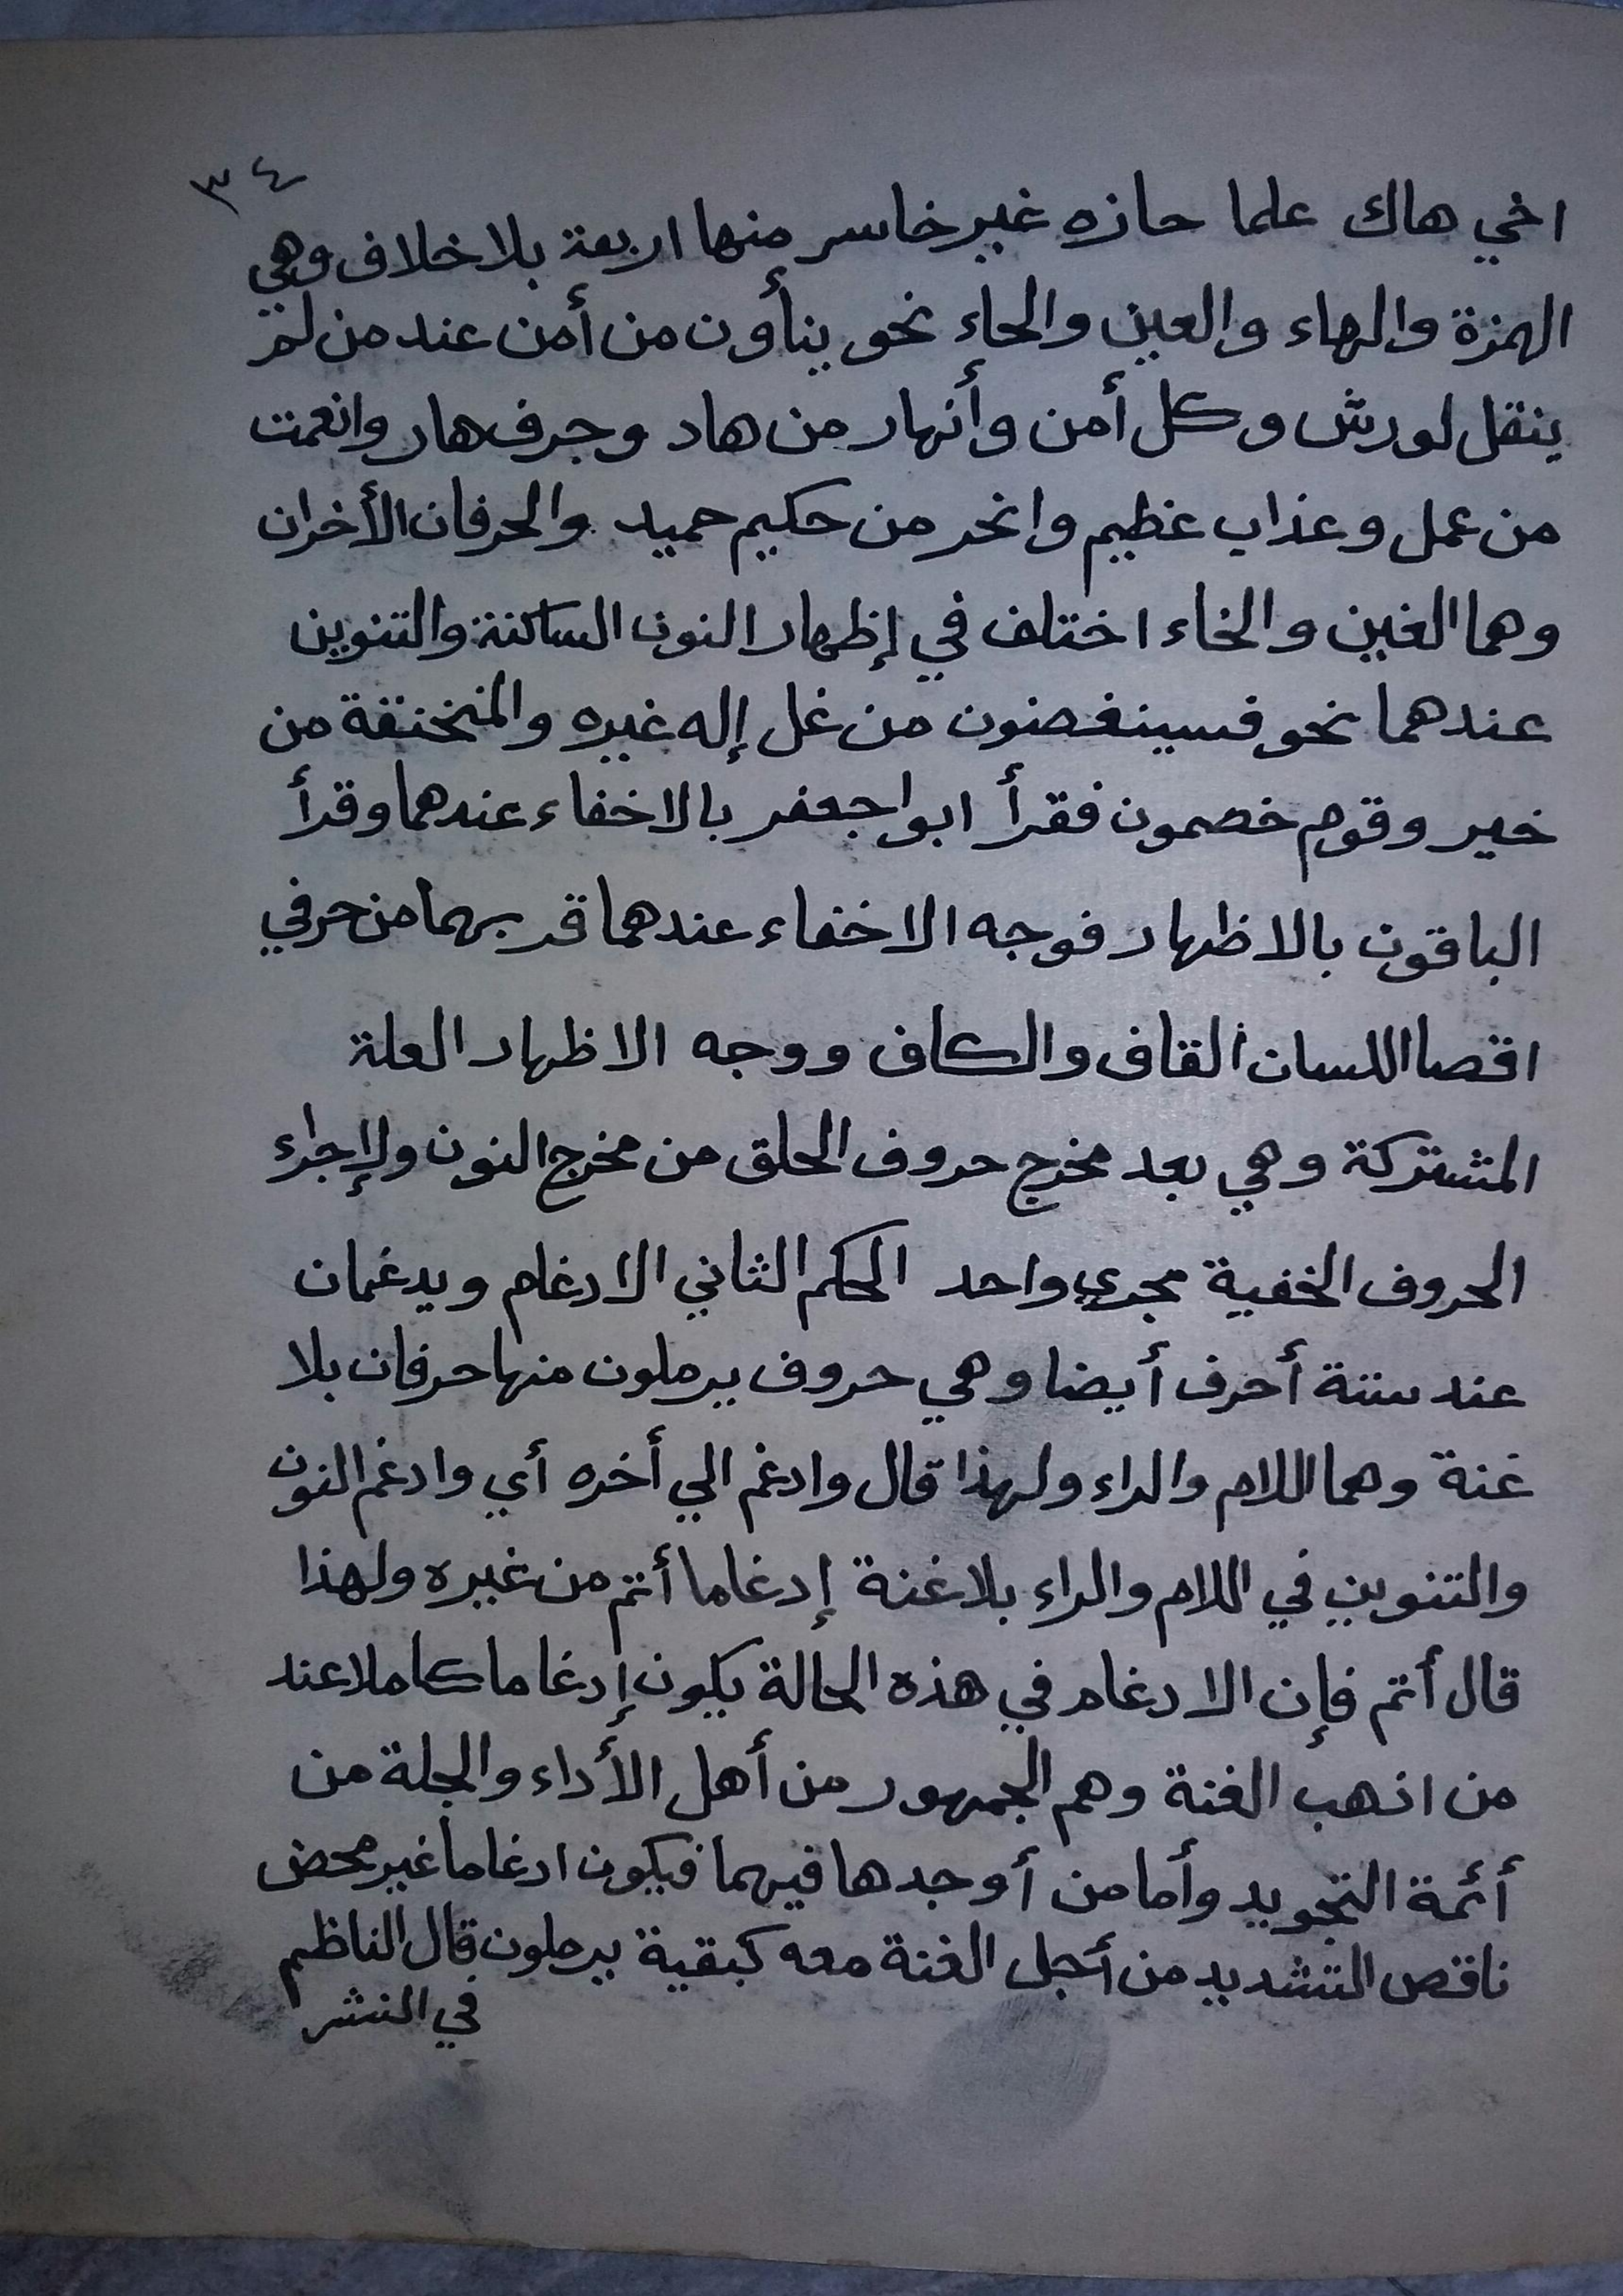 ٣٤
اخي هاك علما حازه غير خاسر منها اربعة بلا خلاف وهي
الهمزة والهاء والعين والحاء نحو ينأون من أمن عند من لم
ينقل لورش وكل أمن وأنهار من هاد وجرف هار وانعمت
من عمل وعذاب عظيم وانحر من حكيم حميد والحرفان الأخران
وهما الغين والخاء اختلف في إظهار النون الساكنة والتنوين
عندهما نحو فسينغضنون من غل إله غيره والمنخنقة من
خير وقوم خصمون فقرأ ابوا جعفر بالاخفاء عندهما وقرأ
الباقون بالاظهار فوجه الاخفاء عندهما قربهما من حرفي
اقصا اللسان القاف والكاف ووجه الاظهار العلة
المشتركة وهي بعد مخرج حروف الحلق من مخرج النون ولإجراء
الحروف الخفية مجري واحد الحكم الثاني الادغام ويدغمان
عند ستة أحرف أيضا وهي حروف يرملون منها حرفان بلا
غنة وهما اللام والراء ولهذا قال وادغم الي أخره أي وادغم النون
والتنوين في اللام والراء بلا غنة إدغاما أتم من غيره ولهذا
قال أتم فإن الادغام في هذه الحالة يكون إدغاما كاملا عند
من اذهب الغنة وهم الجمهور من أهل الأداء والجلة من
أئمة التجويد وأما من أوجدها فيهما فيكون ادغاما غير محض
ناقص التشديد من أجل الغنة معه كبقية يرملون قال الناظم
في النشر